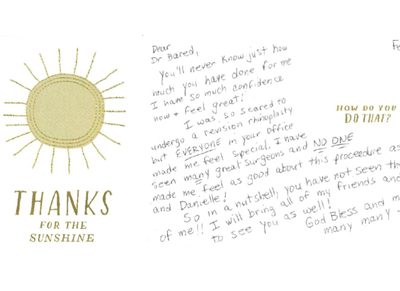 THANKS
FOR THE
SUNSHINE
Dear
Dr Bared,
You'll never know just how
much you have done for me
I have so much confidence
now + feel great!
I was so scared to
undergo a revision rhinoplasty
but EVERYONE in your office
made me feel special. I have
seen many great surgeons and NO ONE
made me feel as good about this procedure as
and Danielle!
So in a nutshell, you have not seen the
of me!! I will bring all of my friends and
to see you as well!
God Bless and m
many many -
Fe
HOW DO YOU
DO THAT?